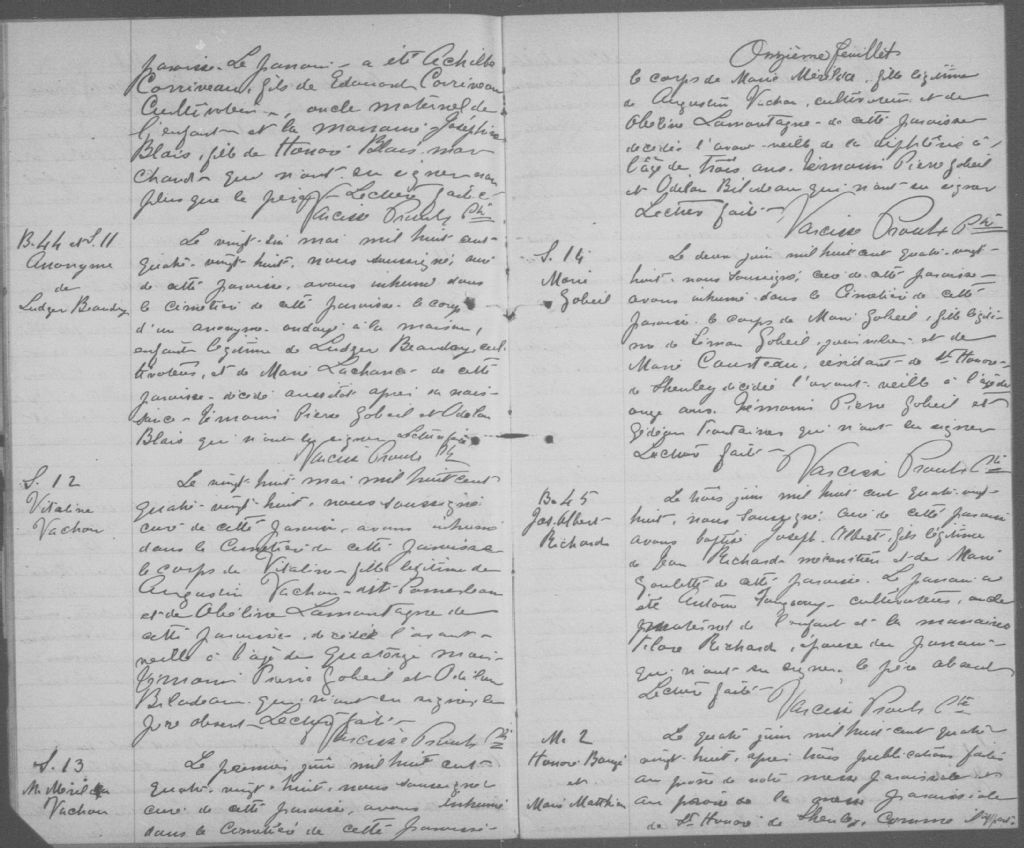 paroisse. Le parrain a été Achille
Corriveau, fils de Edouard Corriveau
Cultivateur, oncle maternel de
l'enfant et la marraine Joséphine
Blais, fille de Honoré Blais, mar
chand qui n'ont su signer non
plus que le père. Lecture faite
Narcisse Proulx Ptre
B. 44 et S. 11
Anonyme
de
Ludger Beaudoin
Le vingt-six mai mil huit cent
quatre-vingt-huit, nous soussigné, curé
de cette paroisse, avons inhumé dans
le cimetière de cette paroisse le corps
d'un anonyme ondoyé à la maison,
enfant légitime de Ludger Beaudoin, cul
tivateur, et de Marie Lachance de cette
paroisse décédé aussitôt après sa nais
sance. Témoins Pierre Gobeil et
Blais qui n'ont su signer. Lecture faite
Narcisse Proulx Ptre
S. 12
Vitaline
Vachon
Le vingt-huit mai mil huit cent
quatre-vingt-huit, nous soussigné
curé de cette paroisse, avons inhumé
dans le Cimetière de cette paroisse
le corps de Vitaline fille légitime de
Augustin Vachon dit Pomerleau
et de Obéline Lamontagne de
cette paroisse, décédée l'avant-
veille à l'âge de quatorze mois
Témoins Pierre Gobeil et Odilon
Bilodeau qui n'ont su signer le
père absent. Lecture faite
Narcisse Proulx Ptre
S. 13
M.
Vachon
Le premier juin mil huit cent
quatre-vingt-huit, nous soussigné
curé de cette paroisse, avons inhumé
dans le Cimetière de cette paroisse
Onzième feuillet
le corps de Marie fille légitime
de Augustin Vachon, cultivateur et de
Obéline Lamontagne de cette paroisse
décédée l'avant-veille de la diphtérie à
l'âge de trois ans. Témoins Pierre Gobeil
et Bilodeau qui n'ont su signer
Lecture faite
Narcisse Proulx Ptre
S. 14
Marie
Gobeil
Le deux juin mil huit cent quatre-vingt-
huit, nous soussigné, curé de cette paroisse
avons inhumé dans le Cimetière de cette
paroisse le corps de Marie Gobeil, fille légiti
me de Gobeil, journalier et de
Marie résidant de St Honoré
de Shenley décédée l'avant-veille à l'âge de
onze ans. Témoins Pierre Gobeil et
Gédéon Fontaine qui n'ont su signer
Lecture faite
Narcisse Proulx Ptre
B. 45
Jos. Albert
Richard
Le trois juin mil huit cent quatre-vingt-
huit, nous soussigné, curé de cette paroisse
avons baptisé Joseph Albert, fils légitime
de Jean Richard et de Marie
Goulette de cette paroisse. Le parrain a
été Antoine cultivateur, oncle
maternel de l'enfant et la marraine
Richard, épouse du parrain
qui n'ont su signer, le père absent
Lecture faite
Narcisse Proulx Ptre
M. 2
Honoré
et
Marie Mathieu
Le quatre juin mil huit cent quatre
vingt-huit, après trois publications faites
au prône de notre messe paroissiale et
au prône de la messe paroissiale
de St Honoré de Shenley, comme il appert